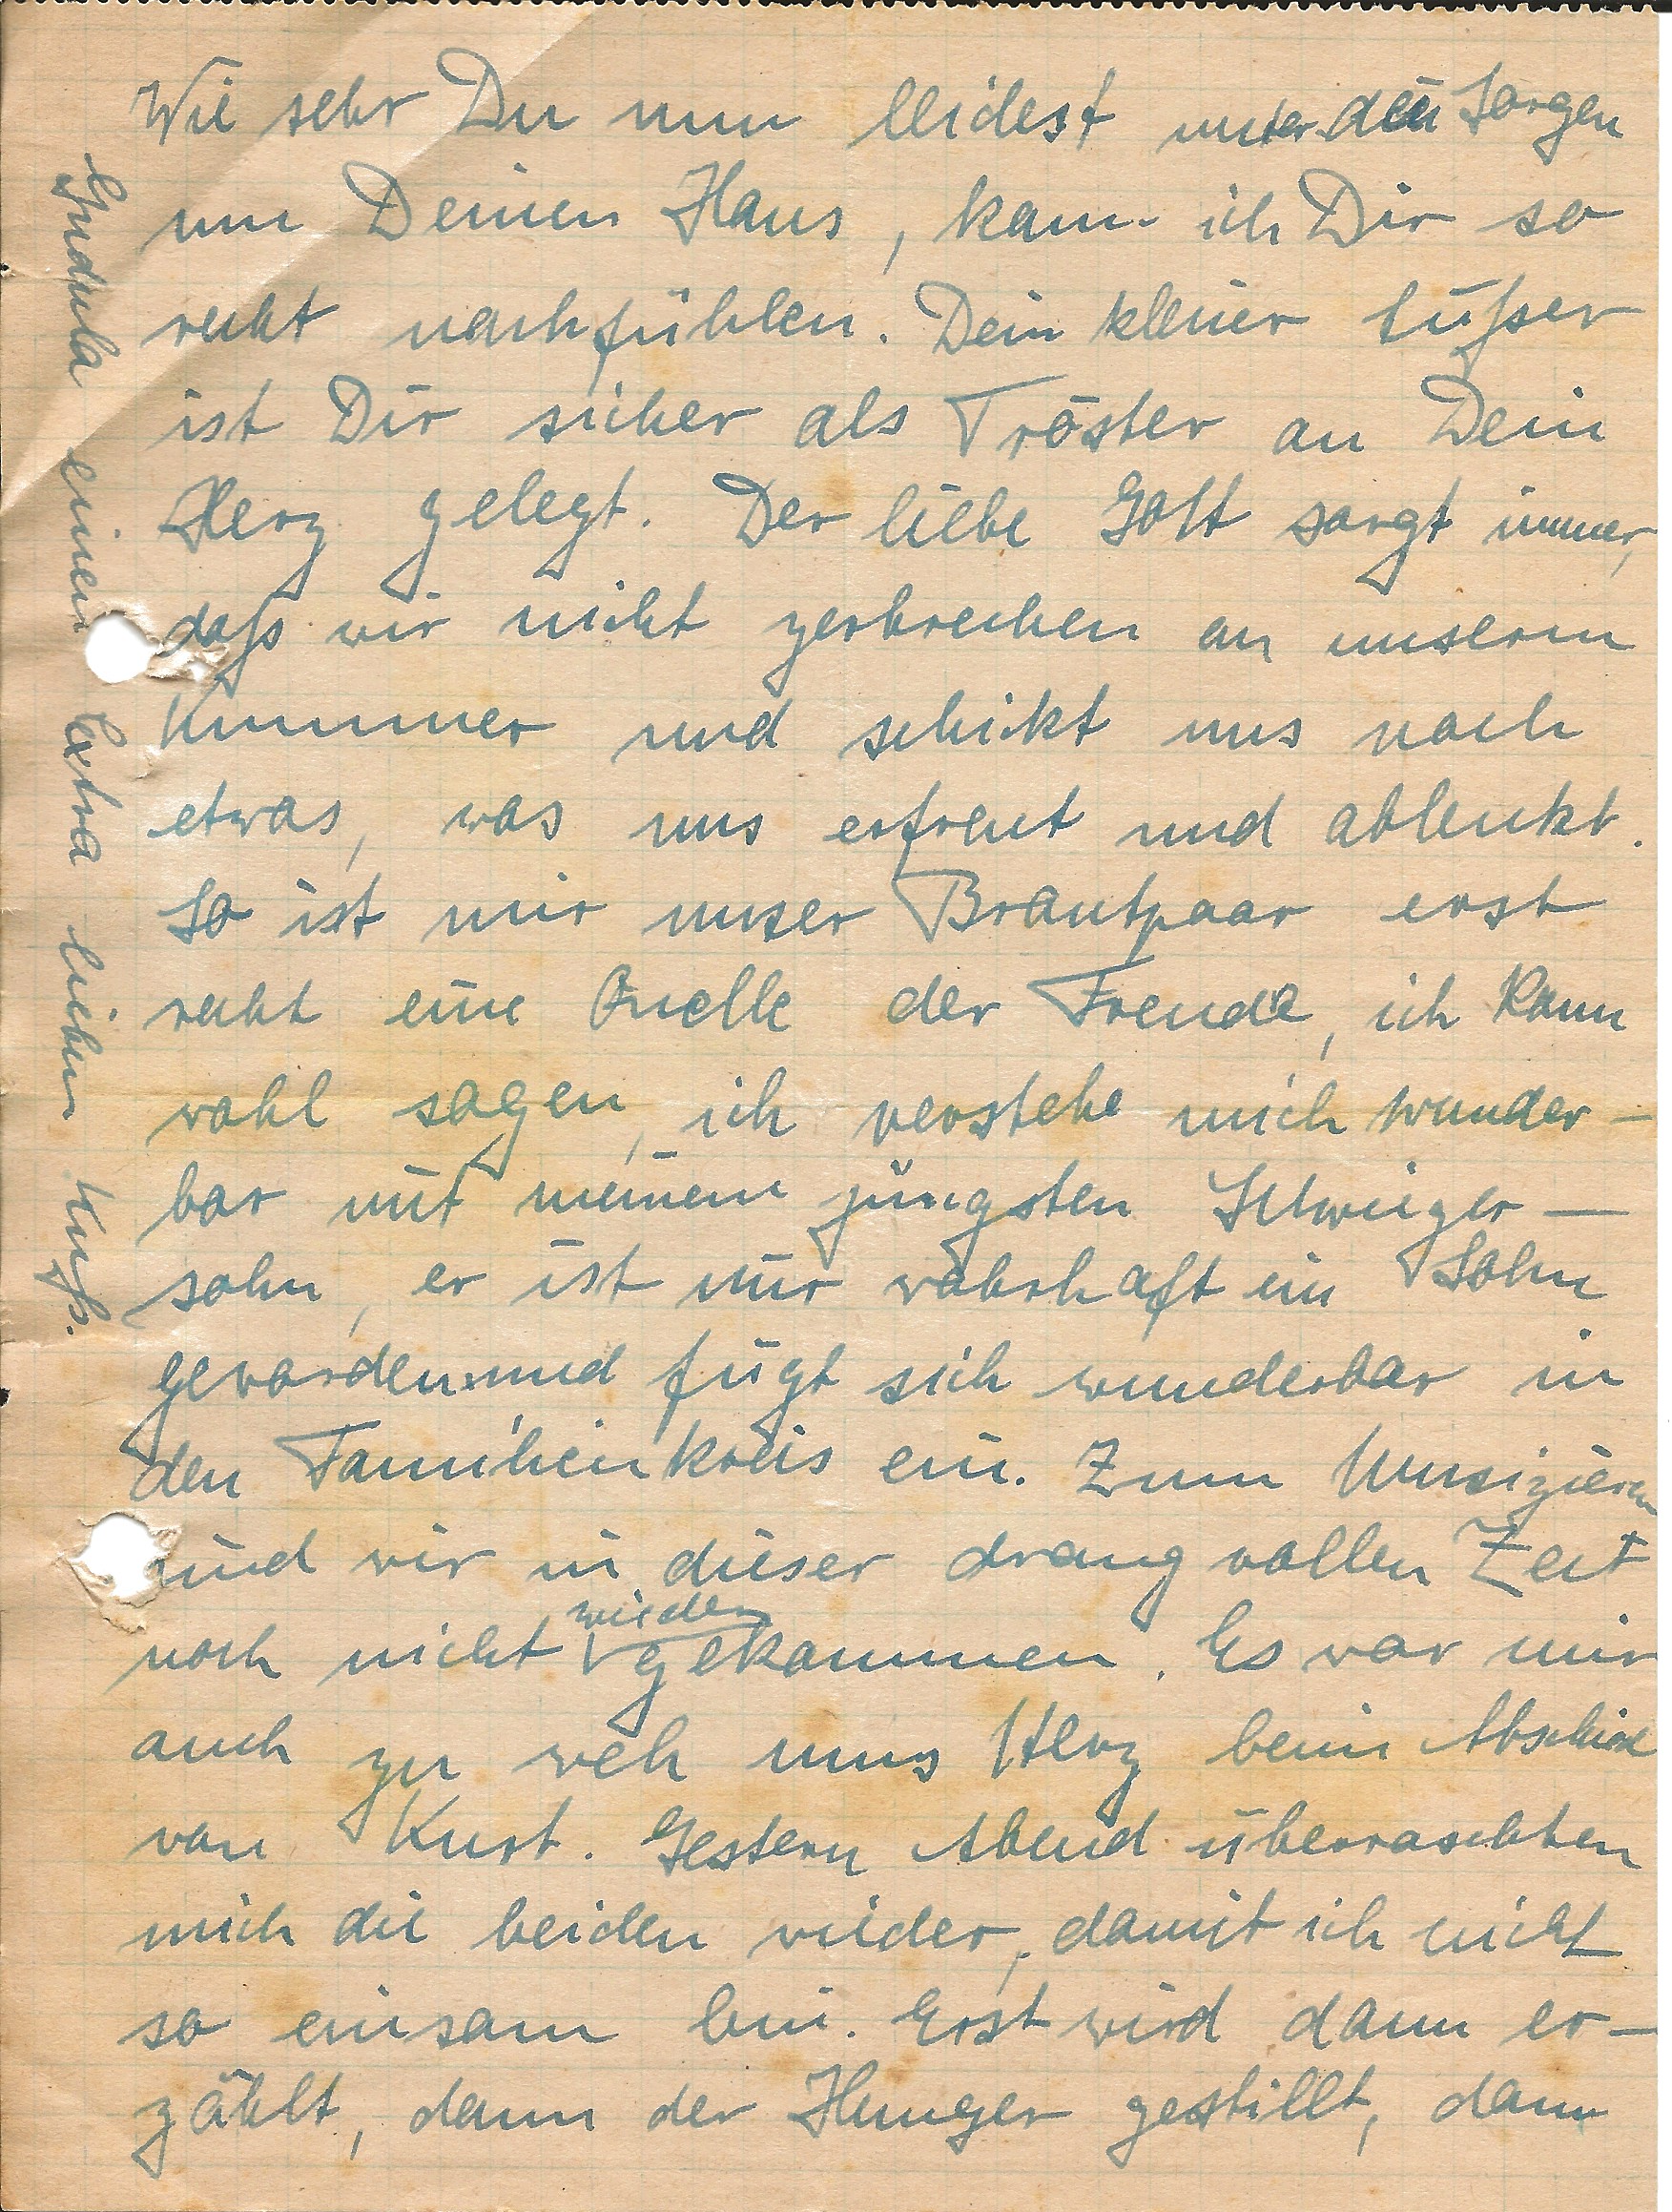 Wie sehr Du nun leidest unter den Sorgen
um Deinen Hans, kann ich Dir so
recht nachfühlen. Dein kleiner süßer
ist Dir sicher als Tröster an Dein
Herz gelegt. Der liebe Gott sorgt immer,
daß wir nicht zerbrechen an unserm
Kummer und schikt uns noch
etwas, was uns erfreut und ablenkt.
So ist mir unser Brautpaar erst
recht eine Quelle der Freude, ich kann
wohl sagen, ich verstehe mich wunder-
bar mit meinem jüngsten Schwieger-
sohn, er ist mir wahrhaft ein Sohn
geworden und fügt sich wunderbar in
den Familienkreis ein. Zum Musizieren
sind wir in dieser drangvollen Zeit
noch nicht wieder gekommen. Es war mir
auch zu weh ums Herz beim Abschied
von Kurt. Gestern Abend überraschten
mich die beiden wieder, damit ich nicht
so einsam bin. Erst wird dann er-
zählt, dann der Hunger gestillt, dann
Gudula einen extra lieben Kuß.